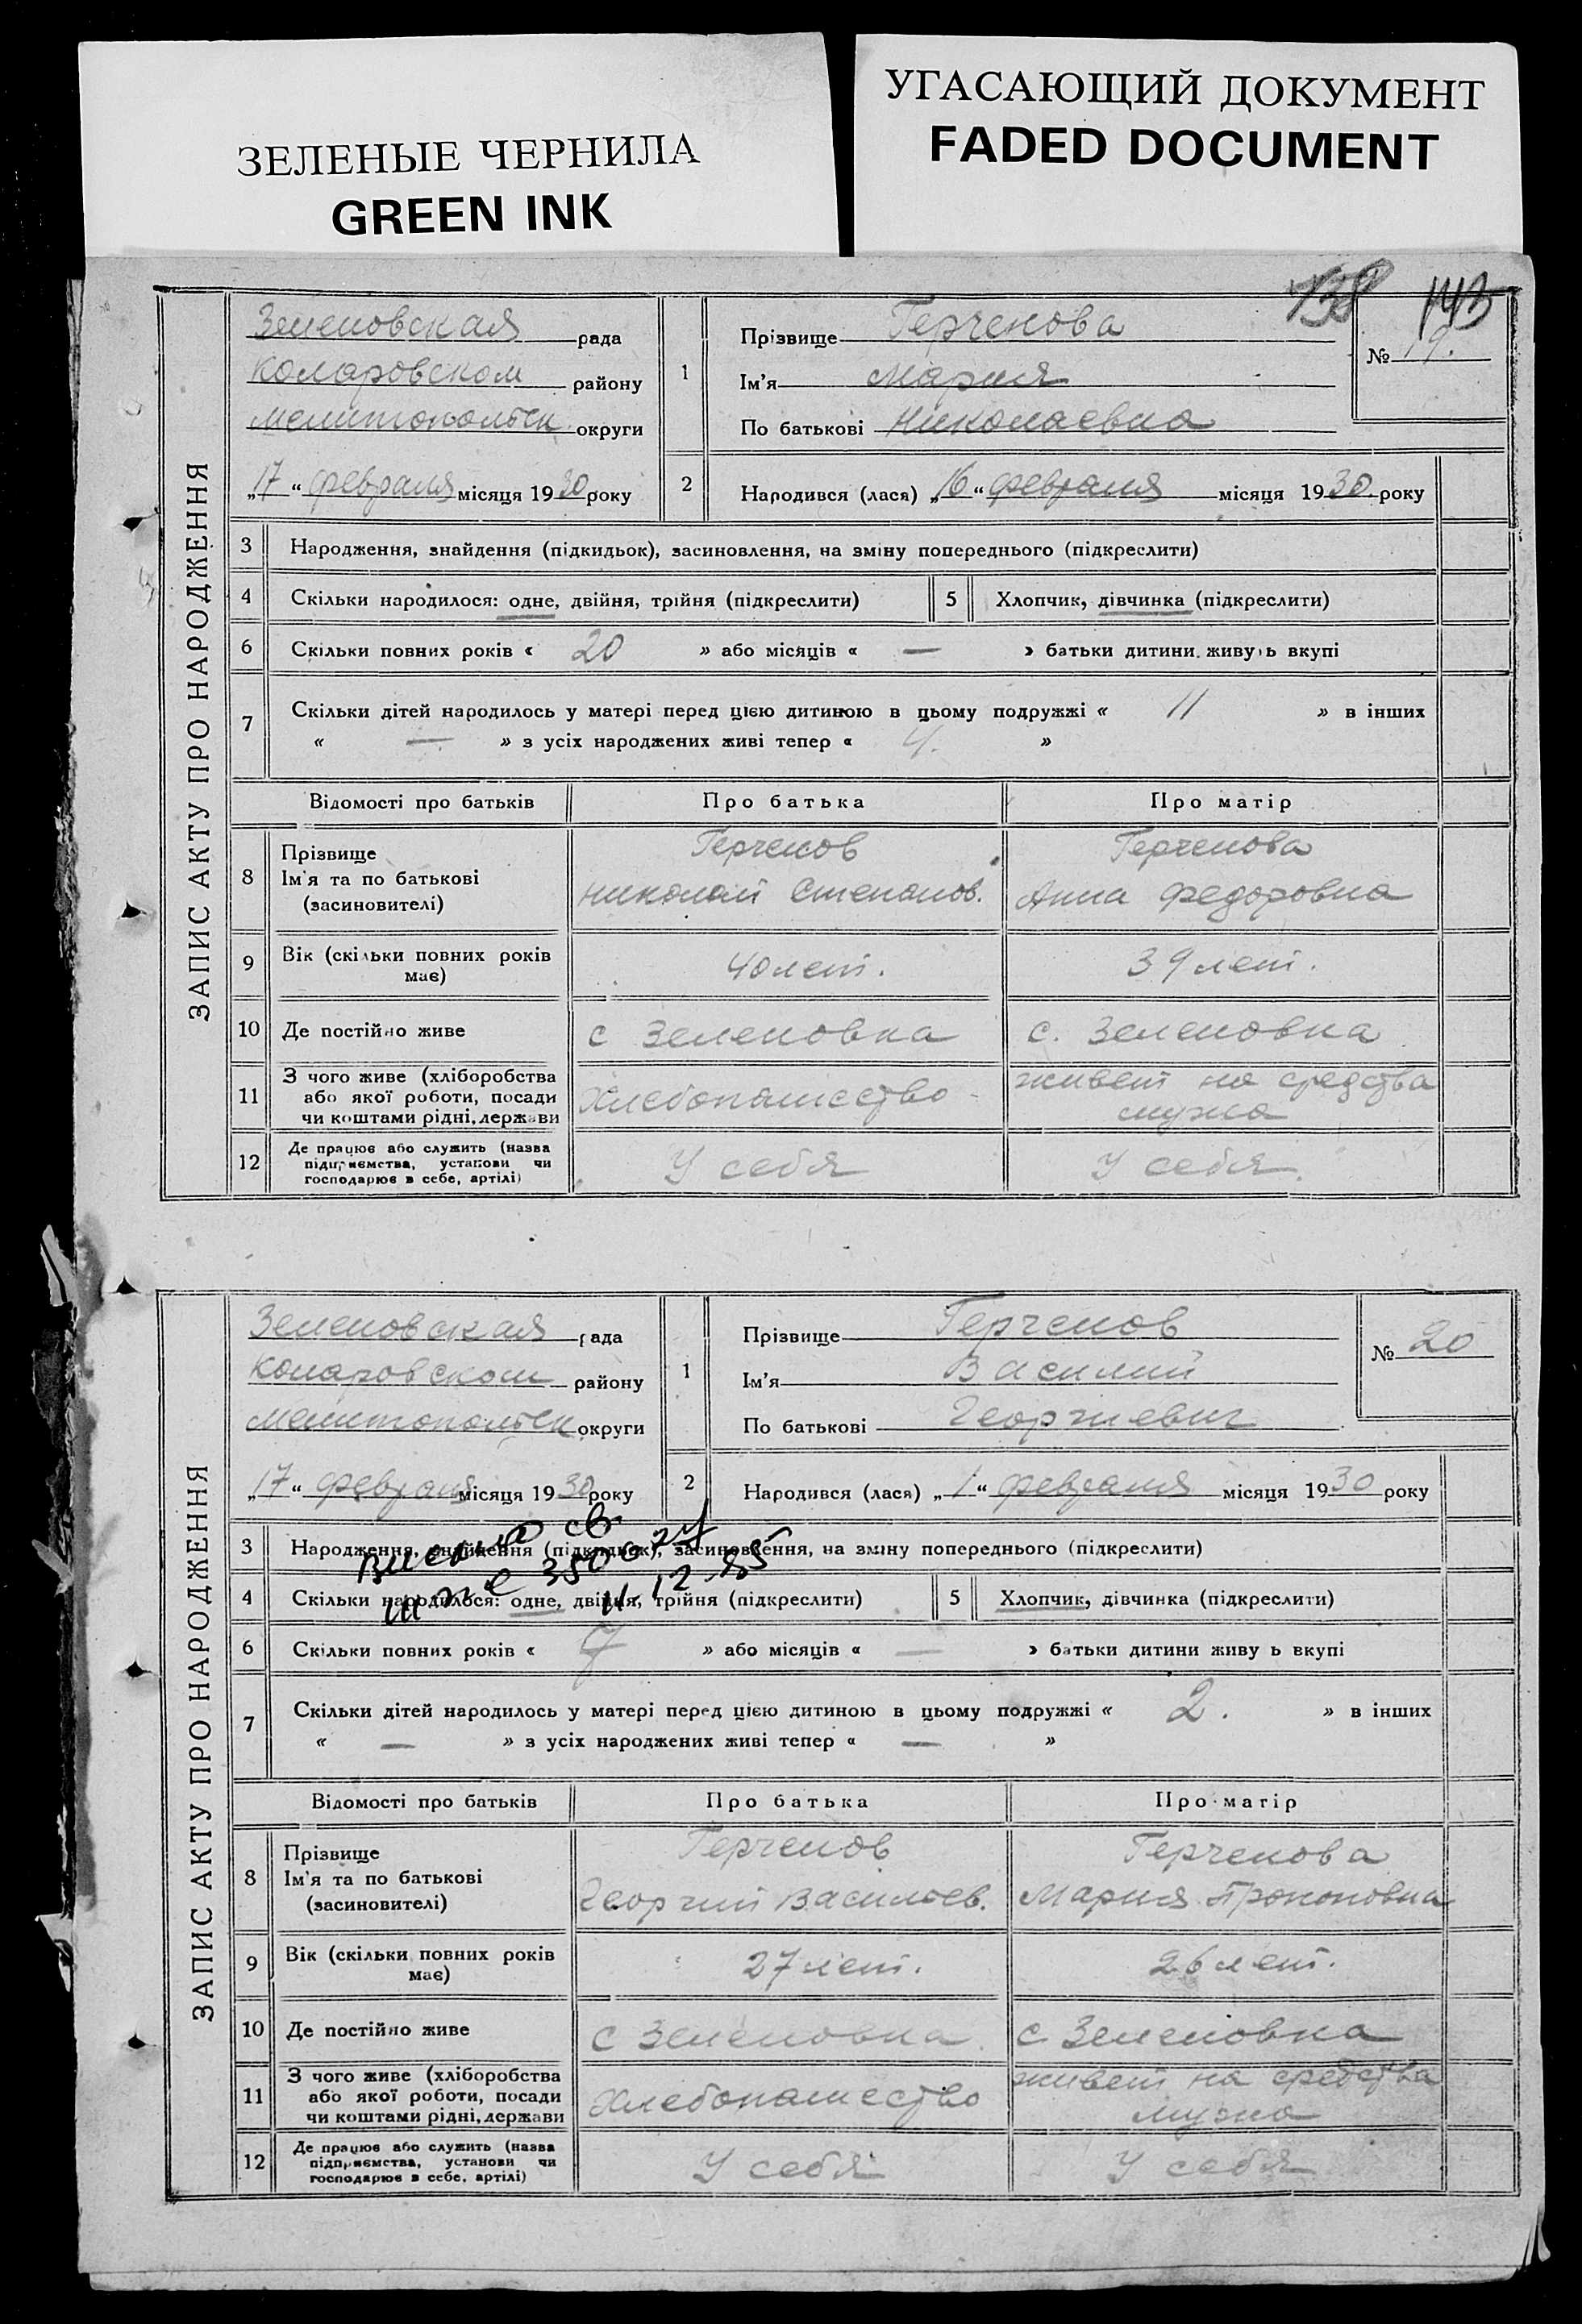 ЗЕЛЕНЫЕ ЧЕРНИЛА
GREEN INK
УГАСАЮЩИЙ ДОКУМЕНТ
FADED DOCUMENT
138 143
ЗАПИС АКТУ ПРО НАРОДЖЕННЯ
Зеленовская рада
Коларовском району
Мелитопольск округи
„17“ февраля місяця 1930 року
1 Прізвище Герченова
Ім'я Мария
По батькові Николаевна
№ 19.
2 Народився (лася) „16“ февраля місяця 1930 року
3 Народження, знайдення (підкидьок), засиновлення, на зміну попереднього (підкреслити)
4 Скільки народилося: одне, двійня, трійня (підкреслити) 5 Хлопчик, дівчинка (підкреслити)
6 Скільки повних років « 20 » або місяців « — » батьки дитини живуть вкупі
7 Скільки дітей народилось у матері перед цією дитиною в цьому подружжі « 11 » в інших
« — » з усіх народжених живі тепер « 4. »
Відомості про батьків Про батька Про матір
8 Прізвище Ім'я та по батькові (засиновителі)
Герченов Николай Степанов.
Герченова Анна Федоровна
9 Вік (скільки повних років має) 40 лет. 39 лет.
10 Де постійно живе с Зеленовка с. Зеленовка
11 З чого живе (хліборобства або якої роботи, посади чи коштами рідні, держави
Хлебопашество живет на средства мужа
12 Де працює або служить (назва підприємства, установи чи господарює в себе, артілі)
У себя У себя.
ЗАПИС АКТУ ПРО НАРОДЖЕННЯ
Зеленовская рада
Коларовском району
Мелитопольск округи
„17“ февраля місяця 1930 року
1 Прізвище Герченов
Ім'я Василий
По батькові Георгиевич
№ 20
2 Народився (лася) „1“ февраля місяця 1930 року
3 Народження, знайдення (підкидьок), засиновлення, на зміну попереднього (підкреслити)
4 Скільки народилося: одне, двійня, трійня (підкреслити) 5 Хлопчик, дівчинка (підкреслити)
6 Скільки повних років « 7 » або місяців « — » батьки дитини живу ь вкупі
7 Скільки дітей народилось у матері перед цією дитиною в цьому подружжі « 2. » в інших
« — » з усіх народжених живі тепер « — »
Відомості про батьків Про батька Про матір
8 Прізвище Ім'я та по батькові (засиновителі)
Герченов Георгий Васильев.
Герченова Мария Прокоповна
9 Вік (скільки повних років має) 27 лет. 26 лет.
10 Де постійно живе с Зеленовка с Зеленовка
11 З чого живе (хліборобства або якої роботи, посади чи коштами рідні, держави
Хлебопашество живет на средства мужа
12 Де працює або служить (назва підприємства, установи чи господарює в себе, артілі)
У себя У себя